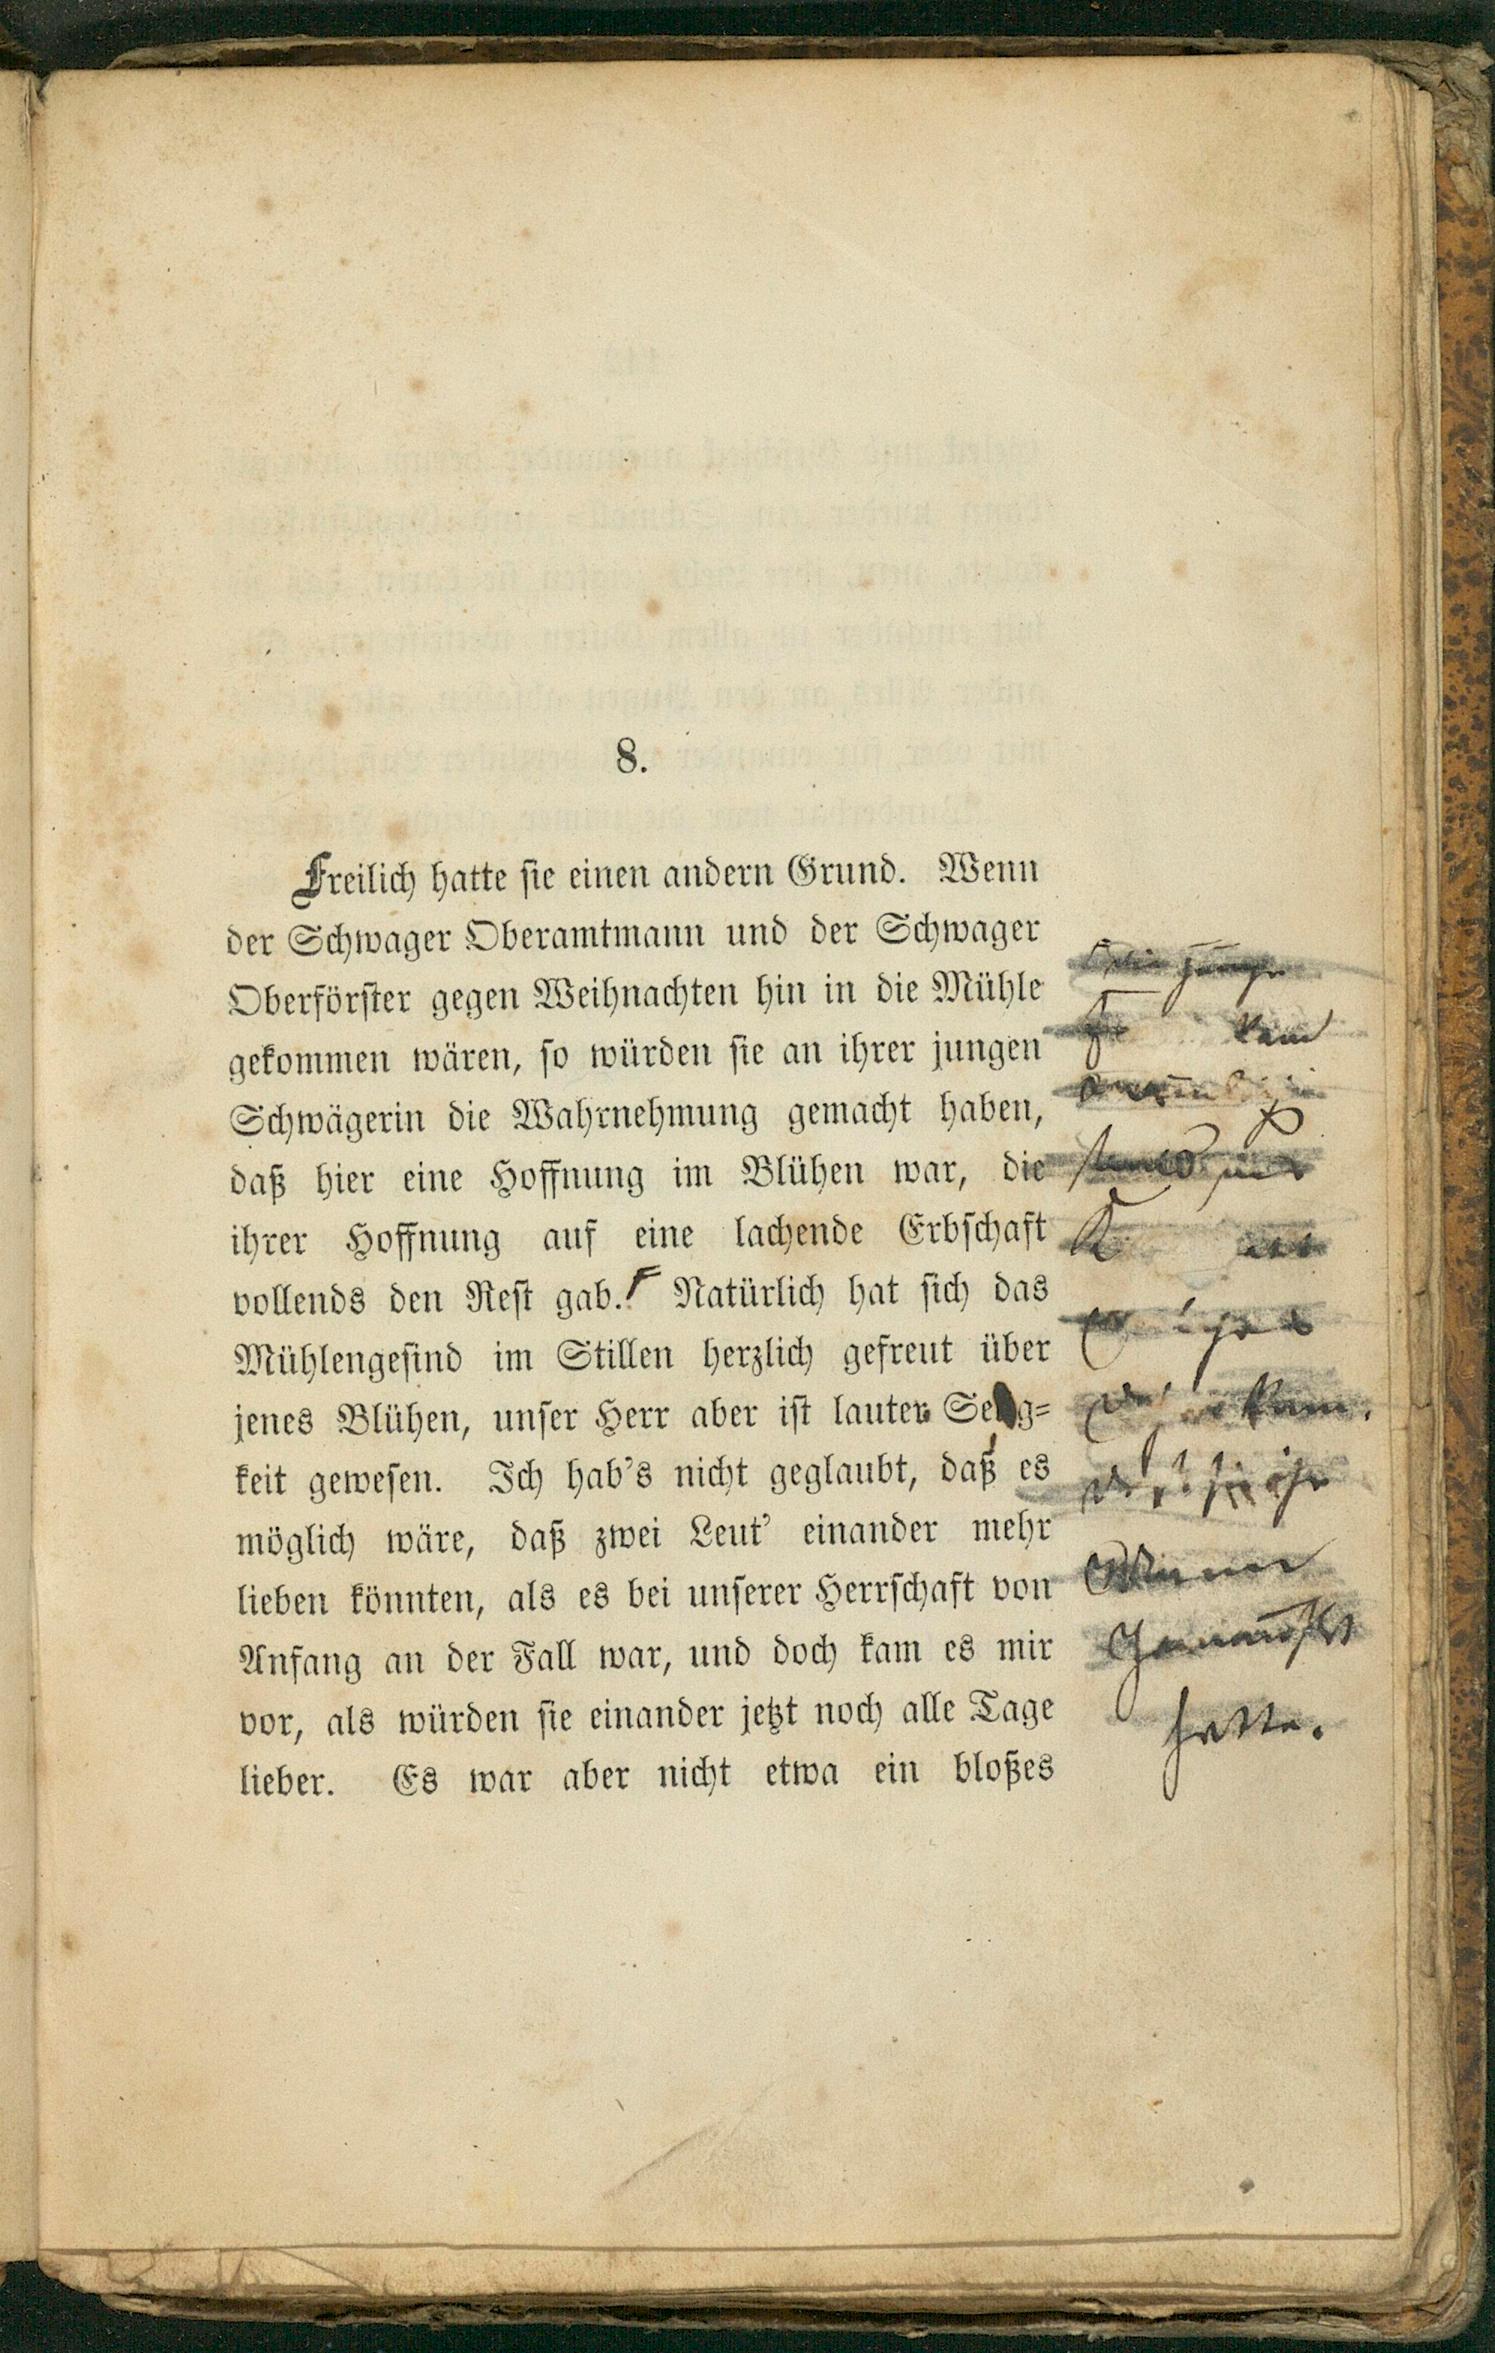 8.
Freilich hatte sie einen andern Grund. Wenn
der Schwager Oberamtmann und der Schwager
Oberförster gegen Weihnachten hin in die Mühle
gekommen wären, so würden sie an ihrer jungen
Schwägerin die Wahrnehmung gemacht haben,
daß hier eine Hoffnung im Blühen war, die
ihrer Hoffnung auf eine lachende Erbschaft
vollends den Rest gab. Natürlich hat sich das
Mühlengesind im Stillen herzlich gefreut über
jenes Blühen, unser Herr aber ist lauter Selig-
keit gewesen. Ich hab's nicht geglaubt, daß es
möglich wäre, daß zwei Leut' einander mehr
lieben könnten, als es bei unserer Herrschaft von
Anfang an der Fall war, und doch kam es mir
vor, als würden sie einander jetzt noch alle Tage
lieber. Es war aber nicht etwa ein bloßes
junge
kam
hatte.